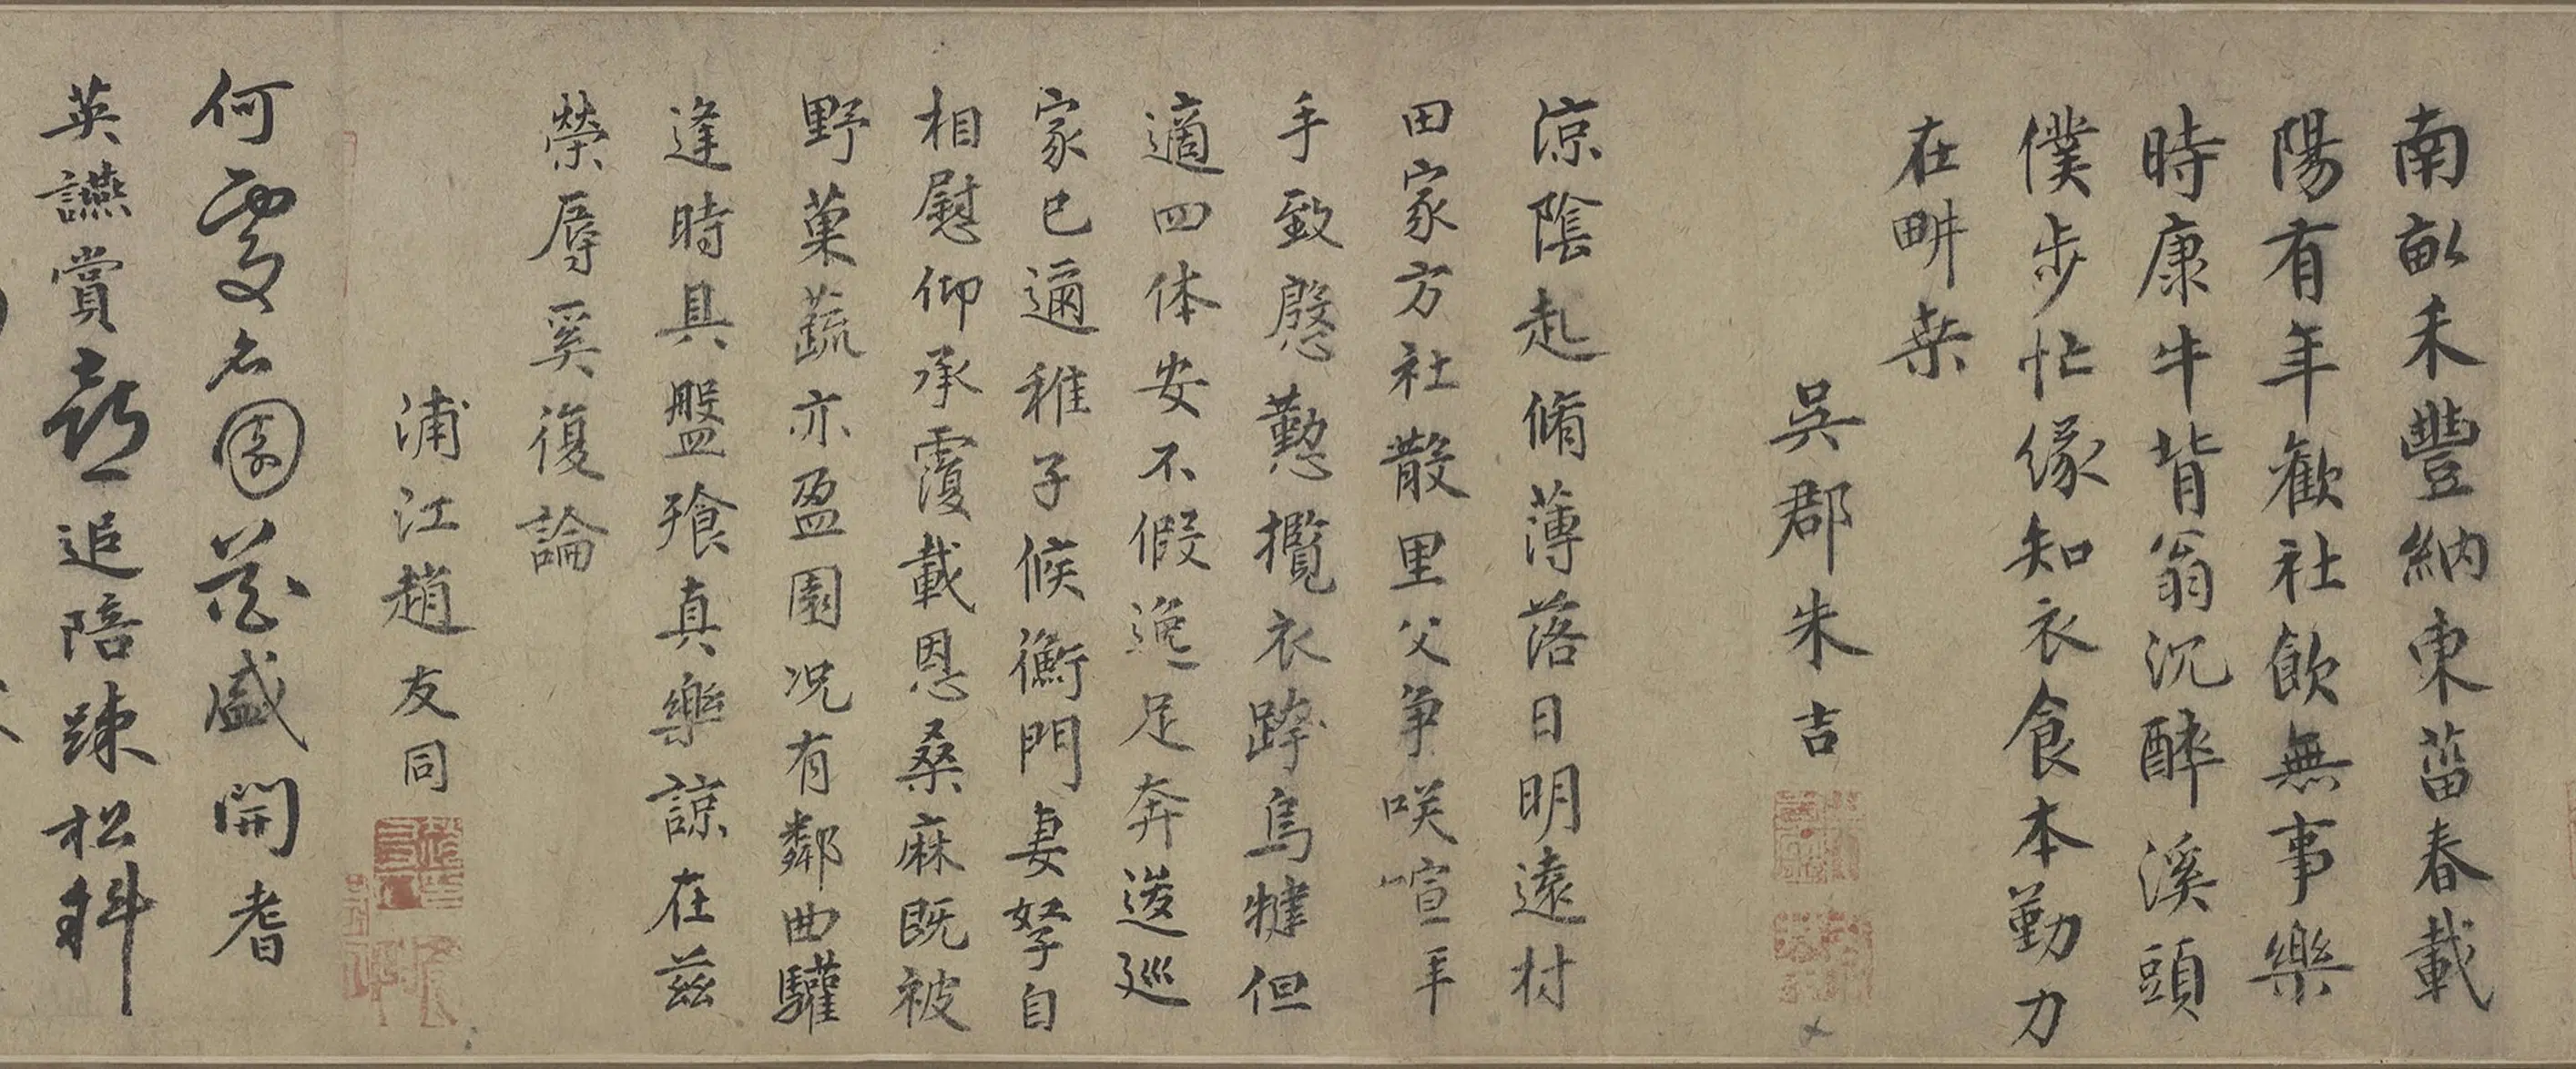 南畝禾豐納東菑春載
陽有年歡社飲無事樂
時康牛背翁沉醉溪頭
僕步忙緣知衣食本勤力
在畊桒
吳郡朱吉
涼陰起脩薄落日明遠村
田家方社散里父爭咲喧平
手致慇懃攬衣跨烏犍但
適四体安不假逸足奔逡巡
家已邇稚子候衡門妻孥自
相慰仰承覆載恩桑麻既被
野菓蔬亦盈園况有鄰曲驩
逢時具盤飱真樂諒在兹
榮辱奚復論
浦江趙友同
何處名園花盛開耆
英讌賞追陪踈松